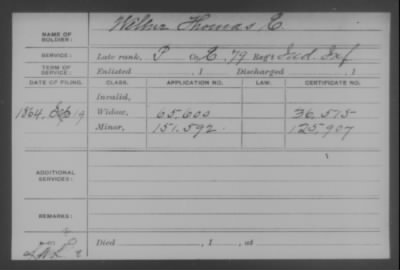 NAME OF SOLDIER: Wilbur Thomas E.
SERVICE: Late rank, P Co. E. 79 Reg't Ind. Inf
TERM OF SERVICE: Enlisted , 1 Discharged , 1
DATE OF FILING. CLASS. APPLICATION NO. LAW. CERTIFICATE NO.
Invalid,
1864, Sep 19 Widow, 65.600 36,515
Minor, 151.592. 125,907
ADDITIONAL SERVICES:
REMARKS:
Died , 1 , at